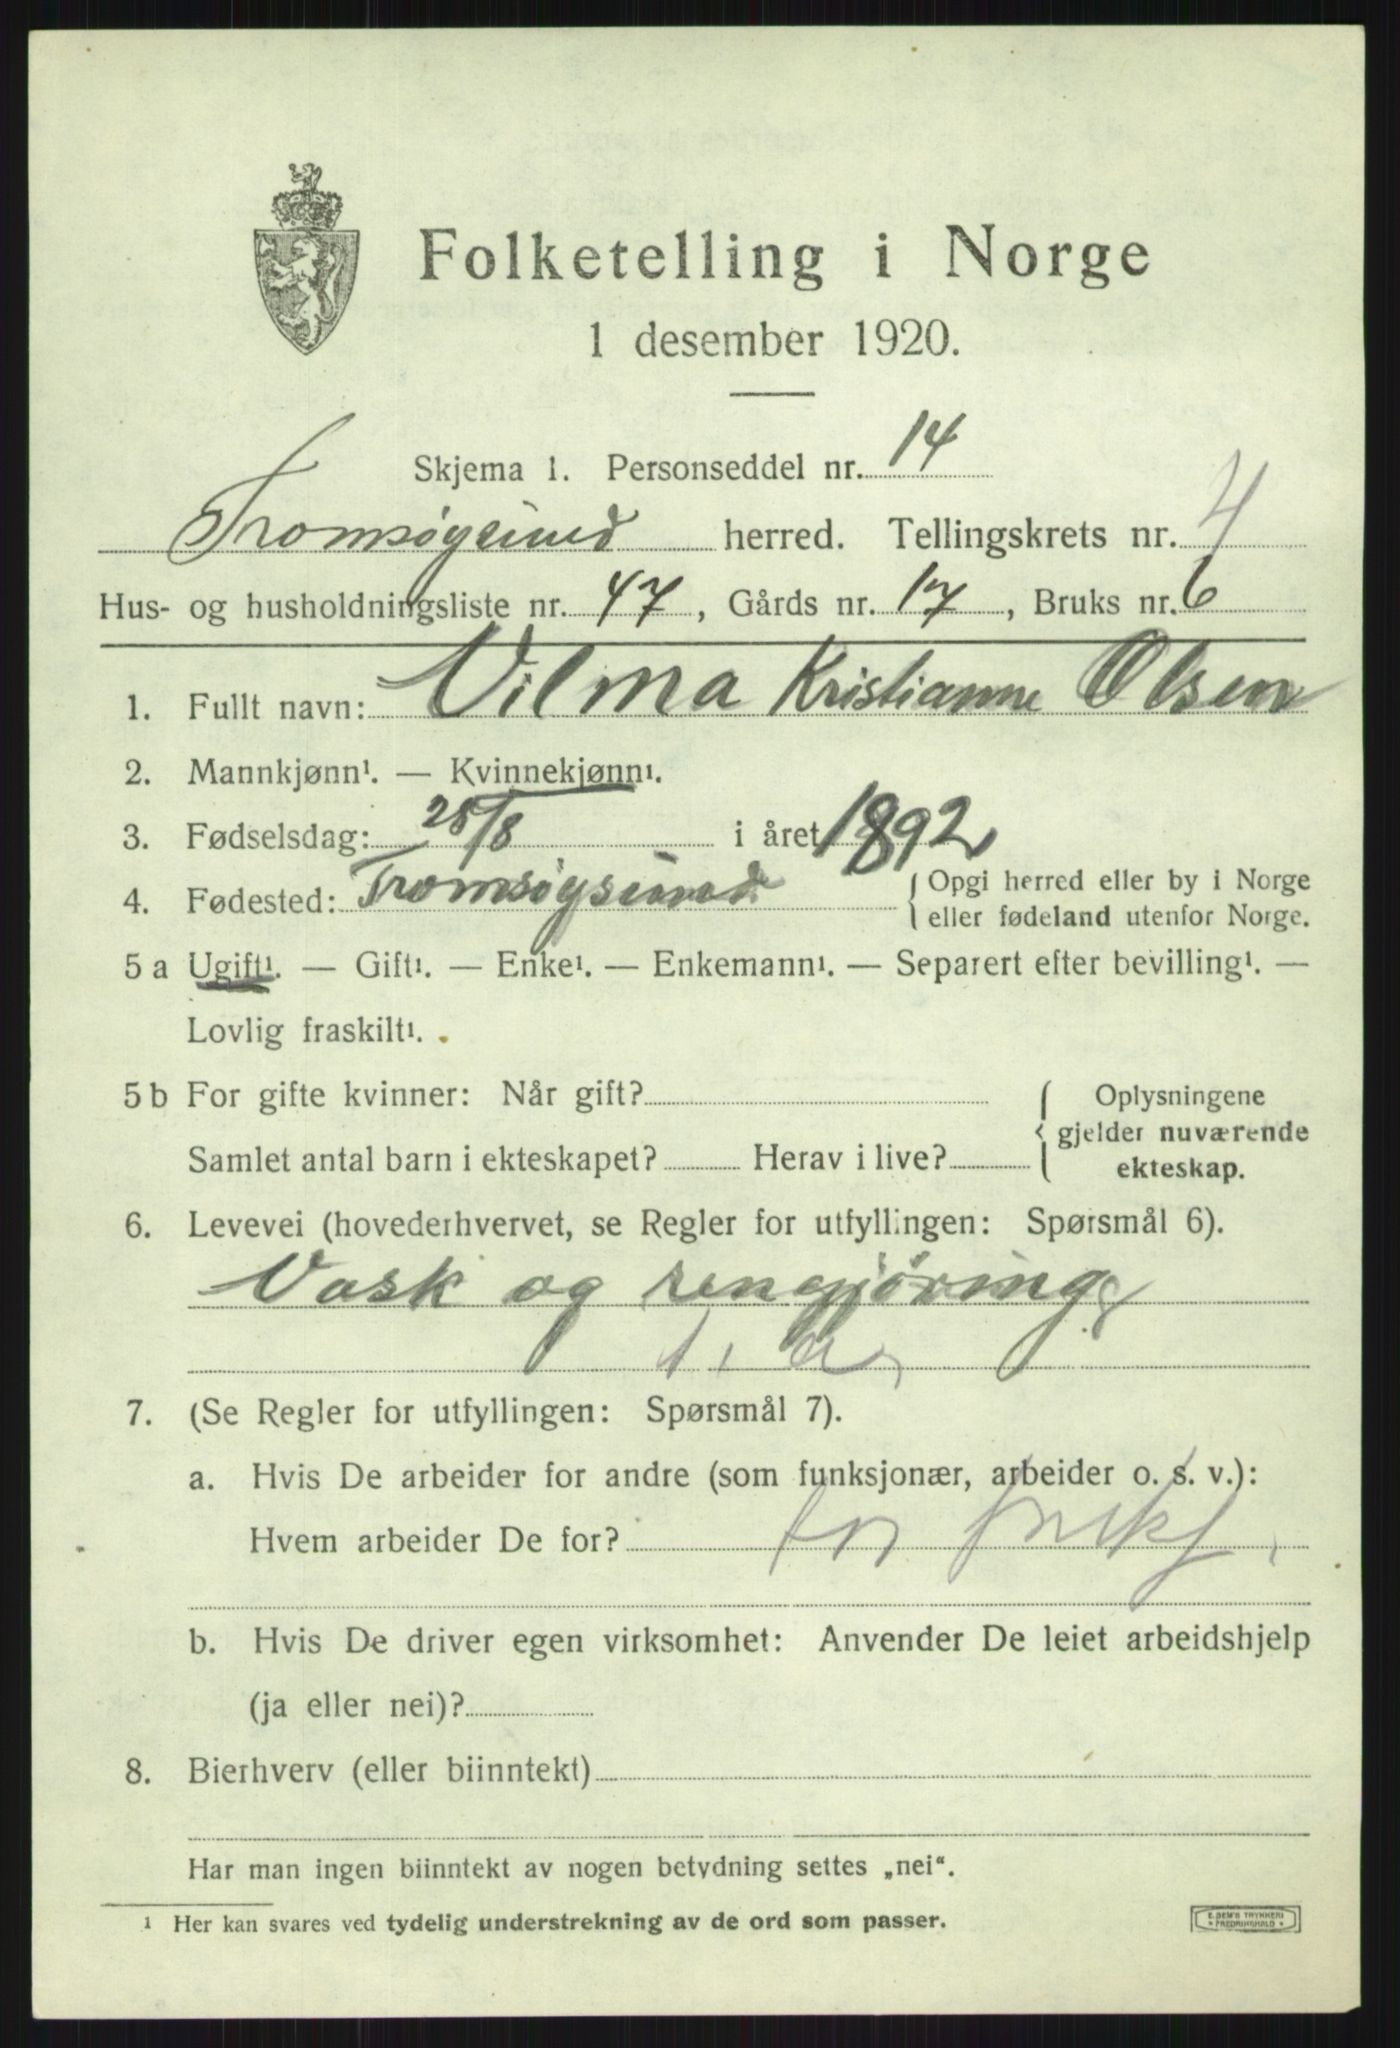 Folketelling i Norge
1 desember 1920.
Skjema 1. Personseddel nr. 14
Tromsøysund herred. Tellingskrets nr. 4
Hus- og husholdningsliste nr. 47, Gårds nr. 17, Bruks nr. 6
1. Fullt navn: Vilma Kristianne Olsen
2. Mannkjønn¹. — Kvinnekjønn¹.
3. Fødselsdag: 28/8 i året 1892
4. Fødested: Tromsøysund { Opgi herred eller by i Norge
eller fødeland utenfor Norge.
5 a Ugift¹. — Gift¹. — Enke¹. — Enkemann¹. — Separert efter bevilling¹. —
Lovlig fraskilt¹.
5 b For gifte kvinner: Når gift? { Oplysningene
gjelder nuværende
Samlet antal barn i ekteskapet? Herav i live? ekteskap.
6. Levevei (hovederhvervet, se Regler for utfyllingen: Spørsmål 6).
Vask og rengjøring
7. (Se Regler for utfyllingen: Spørsmål 7).
a. Hvis De arbeider for andre (som funksjonær, arbeider o. s. v.):
Hvem arbeider De for? for
b. Hvis De driver egen virksomhet: Anvender De leiet arbeidshjelp
(ja eller nei)?
8. Bierhverv (eller biinntekt)
Har man ingen biinntekt av nogen betydning settes „nei“.
¹ Her kan svares ved tydelig understrekning av de ord som passer.
E. SEM'S TRYKKERI
FREDRIKSHALD